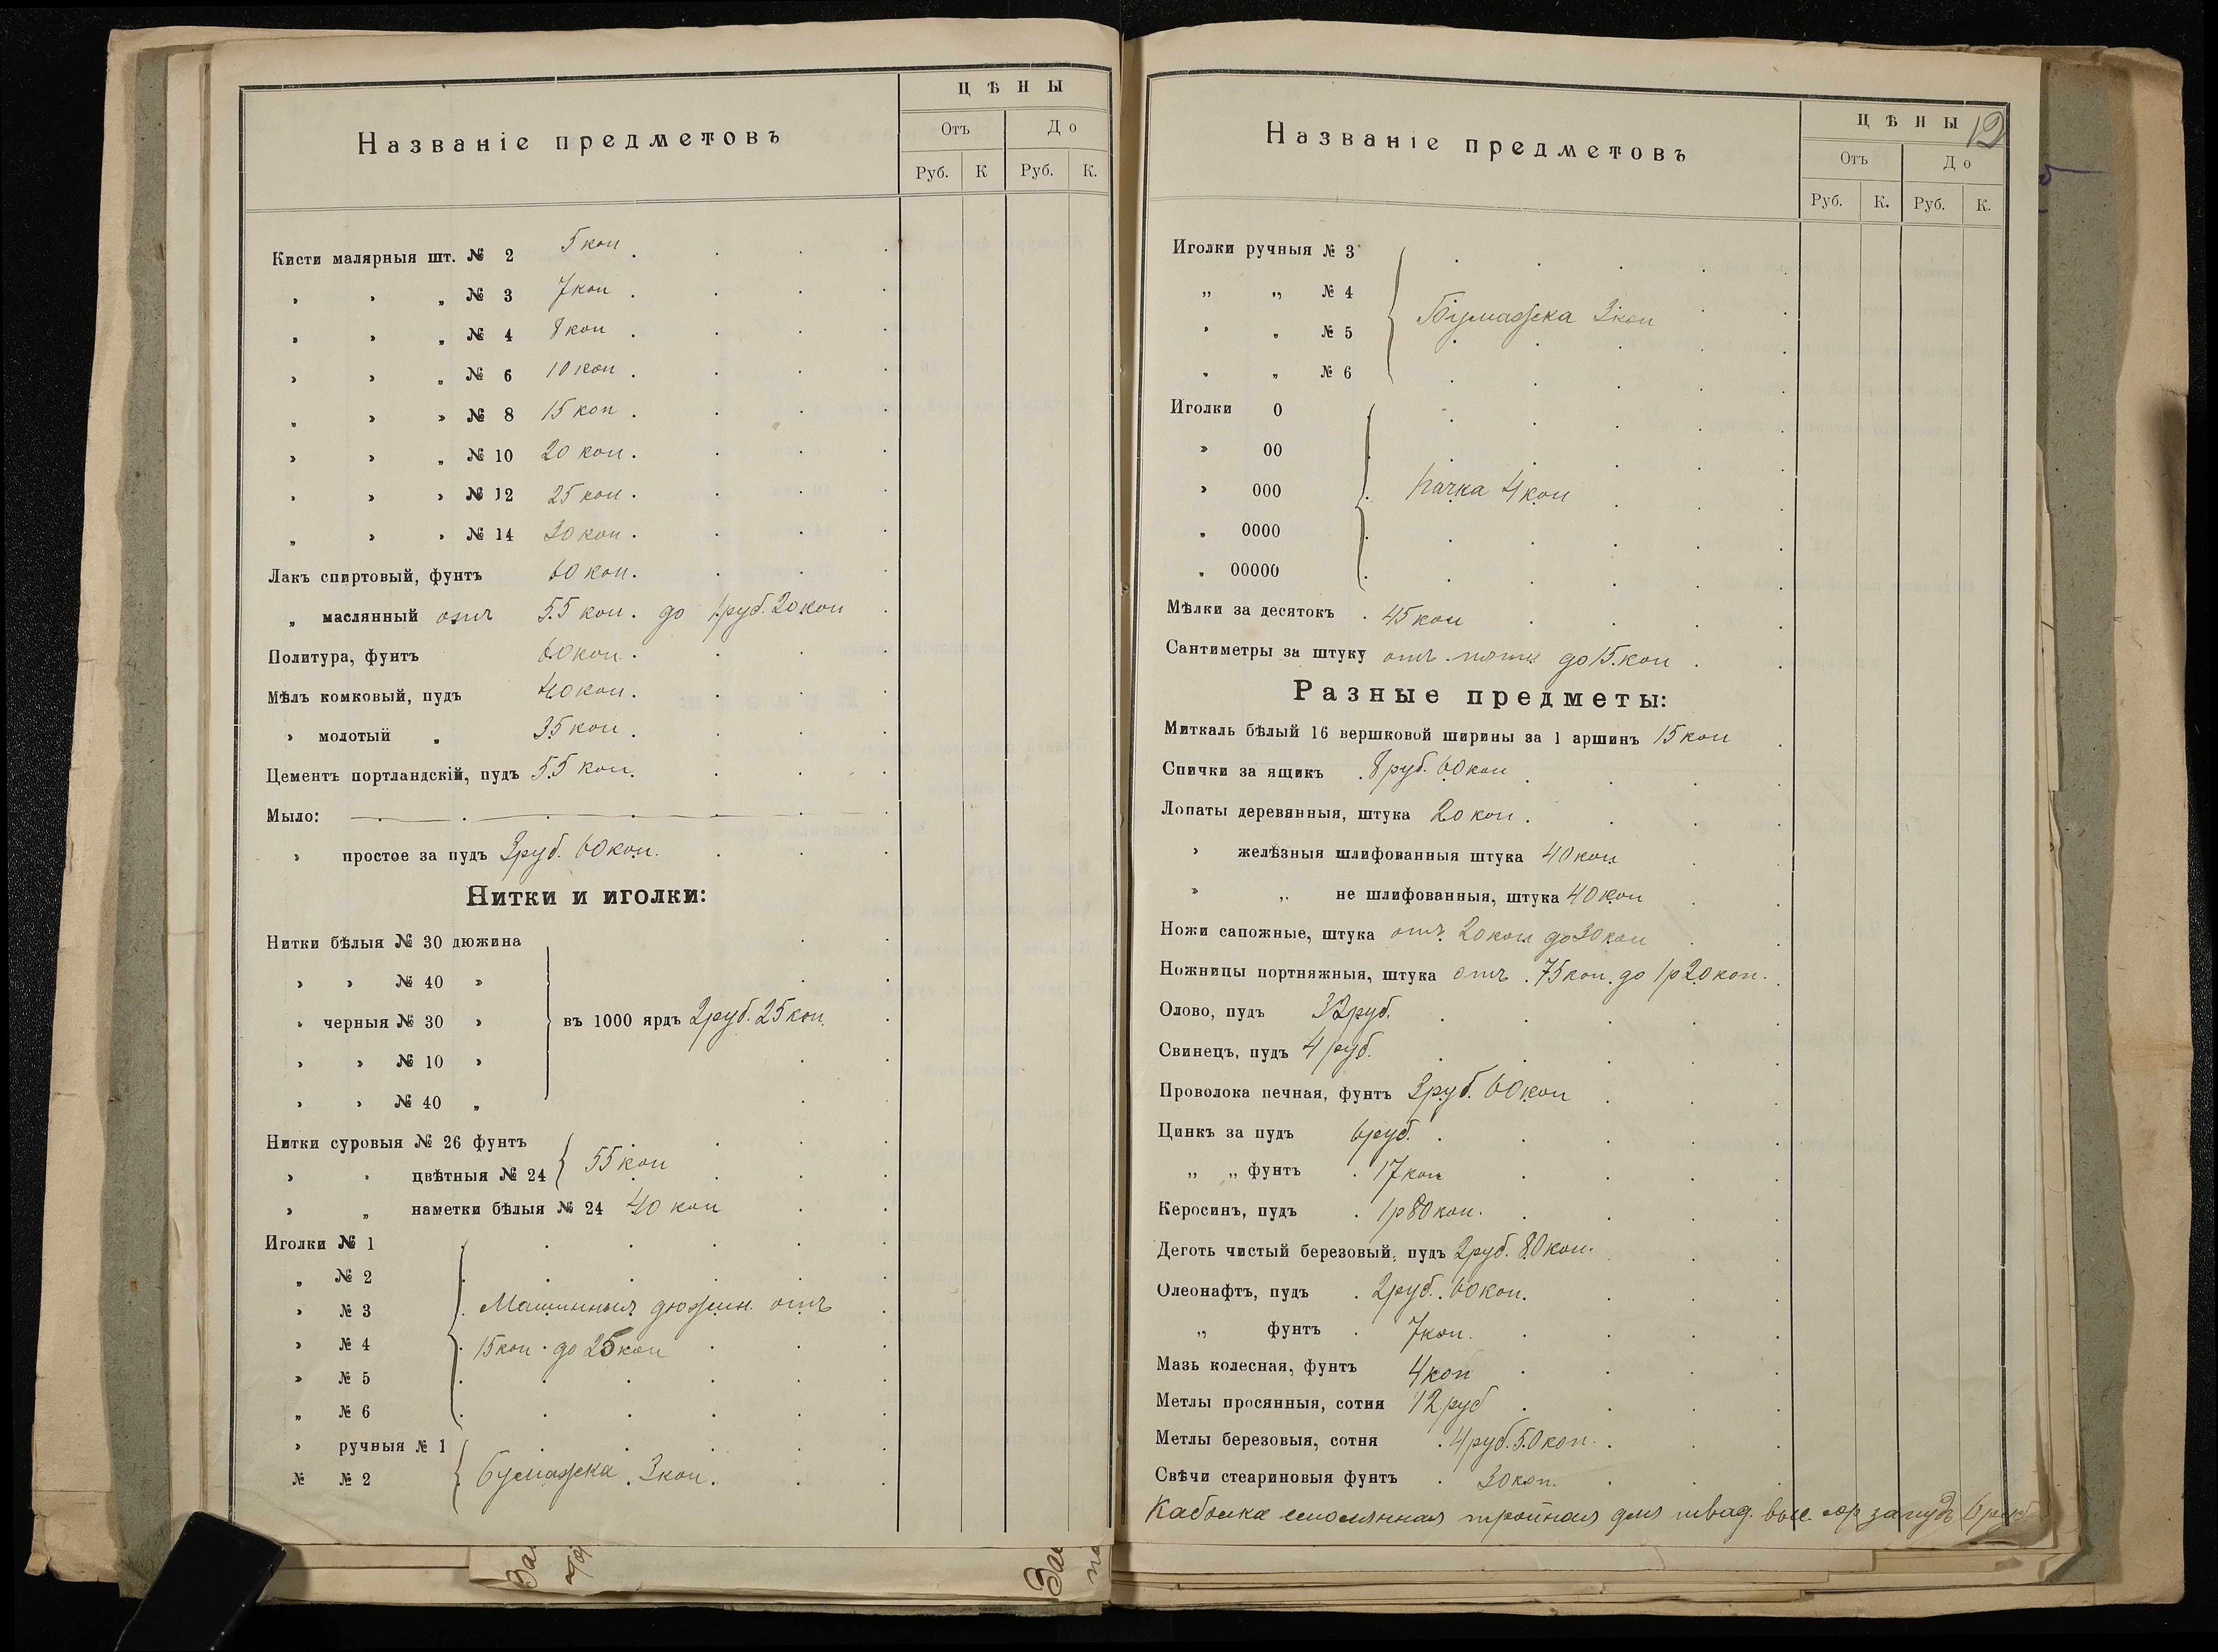 Названіе предметовъ
ЦѢНЫ
Отъ До
Руб. К Руб. К.
Кисти малярныя шт. № 2 5 коп
" " " № 3 7 коп
" " " № 4 8 коп
" " " № 6 10 коп
" " " № 8 15 коп
" " " № 10 20 коп.
" " " № 12 25 коп.
" " " № 14 30 коп.
Лакъ спиртовый, фунтъ 60 коп.
" маслянный отъ 55 коп. до 1 руб. 20 коп
Политура, фунтъ 60 коп.
Мѣлъ комковый, пудъ 40 коп.
" молотый " 35 коп.
Цементъ портландскій, пудъ 55 коп.
Мыло:
" простое за пудъ 3 руб. 60 коп.
Нитки и иголки:
Нитки бѣлыя № 30 дюжина
" " № 40 "
" черныя № 30 " въ 1000 ярдъ 2 руб. 25 коп.
" " № 10 "
" " № 40 "
Нитки суровыя № 26 фунтъ
" " цвѣтныя № 24 55 коп
" " наметки бѣлыя № 24 40 коп
Иголки № 1
" № 2
" № 3 Машинныя дюжин. отъ
" № 4 15 коп. до 25 коп
" № 5
" № 6
" ручныя № 1
№ № 2 бумажка 3 коп.
12
Названіе предметовъ
ЦѢНЫ
Отъ До
Руб. К. Руб. К.
Иголки ручныя № 3
" " № 4 Бумажка 3 коп
" " № 5
" " № 6
Иголки 0
" 00
" 000 пачка 4 коп
" 0000
" 00000
Мѣлки за десятокъ 45 коп
Сантиметры за штуку отъ пяти до 15 коп
Разные предметы:
Миткаль бѣлый 16 вершковой ширины за 1 аршинъ 15 коп
Спички за ящикъ 8 руб. 60 коп
Лопаты деревянныя, штука 20 коп.
" желѣзныя шлифованныя штука 40 коп
" " не шлифованныя, штука 40 коп
Ножи сапожные, штука отъ 20 коп до 30 коп
Ножницы портняжныя, штука отъ 75 коп. до 1 р 20 коп.
Олово, пудъ 32 руб.
Свинецъ, пудъ 4 руб.
Проволока печная, фунтъ 3 руб. 60 коп
Цинкъ за пудъ 6 руб.
" " фунтъ 17 коп
Керосинъ, пудъ 1 р 80 коп.
Деготь чистый березовый, пудъ 2 руб. 80 коп.
Олеонафтъ, пудъ 2 руб. 60 коп.
" фунтъ 7 коп.
Мазь колесная, фунтъ 4 коп
Метлы просянныя, сотня 12 руб
Метлы березовыя, сотня 4 руб. 50 коп.
Свѣчи стеариновыя фунтъ 30 коп.
Каболка смолянная тройная для швад. за пудъ 6 руб